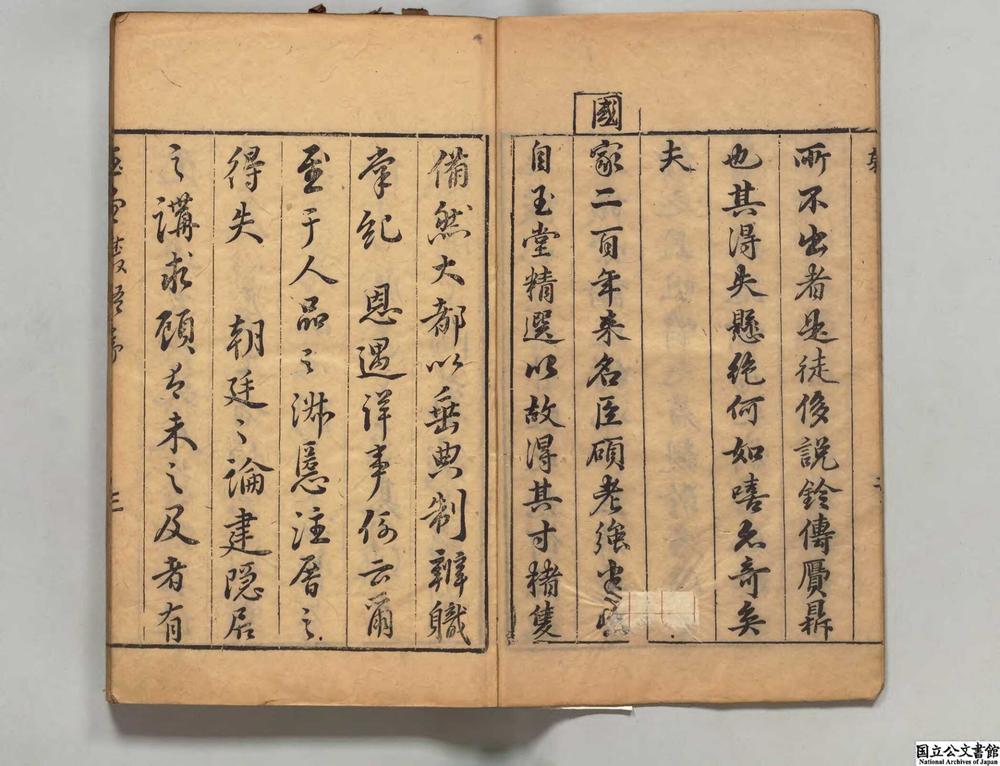 所不出者是徒侈說鈴傳贋鼎
也其得失懸絶何如嘻奇矣
夫
國家二百年来名臣碩老強
自玉堂精選以故得其寸楮隻
備然大都以垂典制辯職
掌紀 恩遇詳事例云爾
至于人品之淑慝注厝之
得失 朝廷之論建隱居
之講求顧有未之及者有
國立公文書館
National Archives of Japan